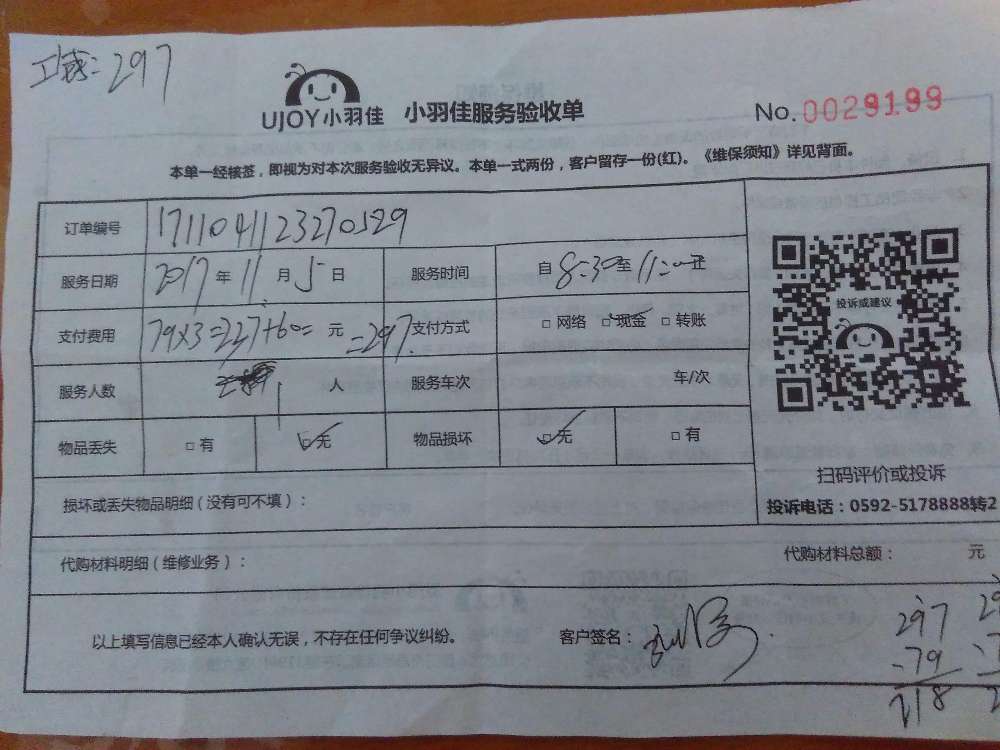 工钱:297
UJOY小羽佳 小羽佳服务验收单
No.0029199
本单一经核签，即视为对本次服务验收无异议。本单一式两份，客户留存一份(红)。《维保须知》详见背面。
订单编号 1711041123270529
服务日期 2017年11月5日 服务时间 自8:30至11:00止
支付费用 79×3=237+60= 元 =297. 支付方式 □网络 ☑现金 □转账
服务人数 1 人 服务车次 车/次
物品丢失 □有 ☑无 物品损坏 ☑无 □有
投诉或建议
扫码评价或投诉
投诉电话：0592-5178888转2
损坏或丢失物品明细（没有可不填）：
代购材料明细（维修业务）： 代购材料总额： 元
以上填写信息已经本人确认无误，不存在任何争议纠纷。 客户签名：
297
-79
218